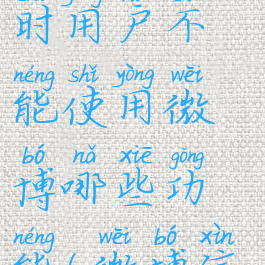 时用户不
néng shǐ yòng wēi
能使用微
bó nǎ xiē gōng
博哪些功
néng wēi bó xìn
能(微博信